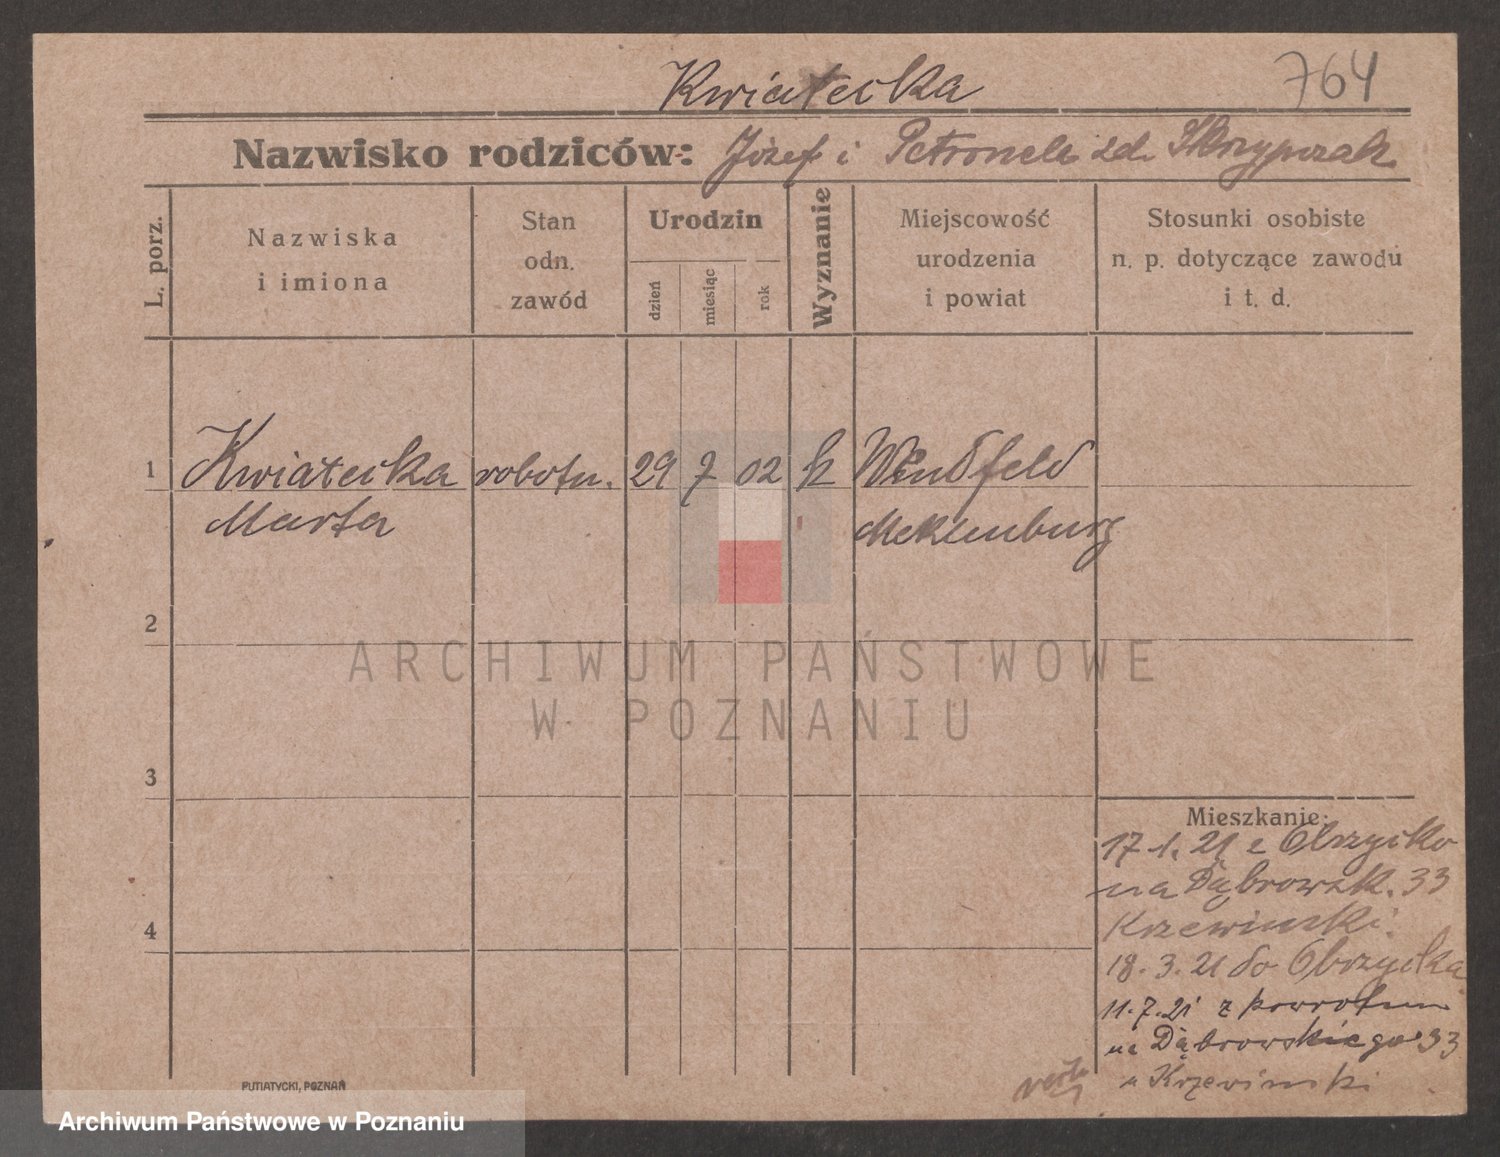 Kwiatecka
764
Nazwisko rodziców: Józef i Petronela zd. Skrzypczak
L. porz.
Nazwiska
i imiona
Stan
odn.
zawód
Urodzin
dzień
miesiąc
rok
Wyznanie
Miejscowość
urodzenia
i powiat
Stosunki osobiste
n. p. dotyczące zawodu
i t. d.
1 Kwiatecka robotn. 29 7 02 k Windfeld
Marta Meklemburg
2
3
4
Mieszkanie:
17.1.21 z Obrzycko
na Dąbrowsk. 33
Krzewinski.
18.3.21 do Obrzycka
11.7.21 z powrotem
na Dąbrowskiego 33
u Krzewinski
verte
PUTIATYCKI, POZNAŃ
ARCHIWUM PAŃSTWOWE
W POZNANIU
Archiwum Państwowe w Poznaniu